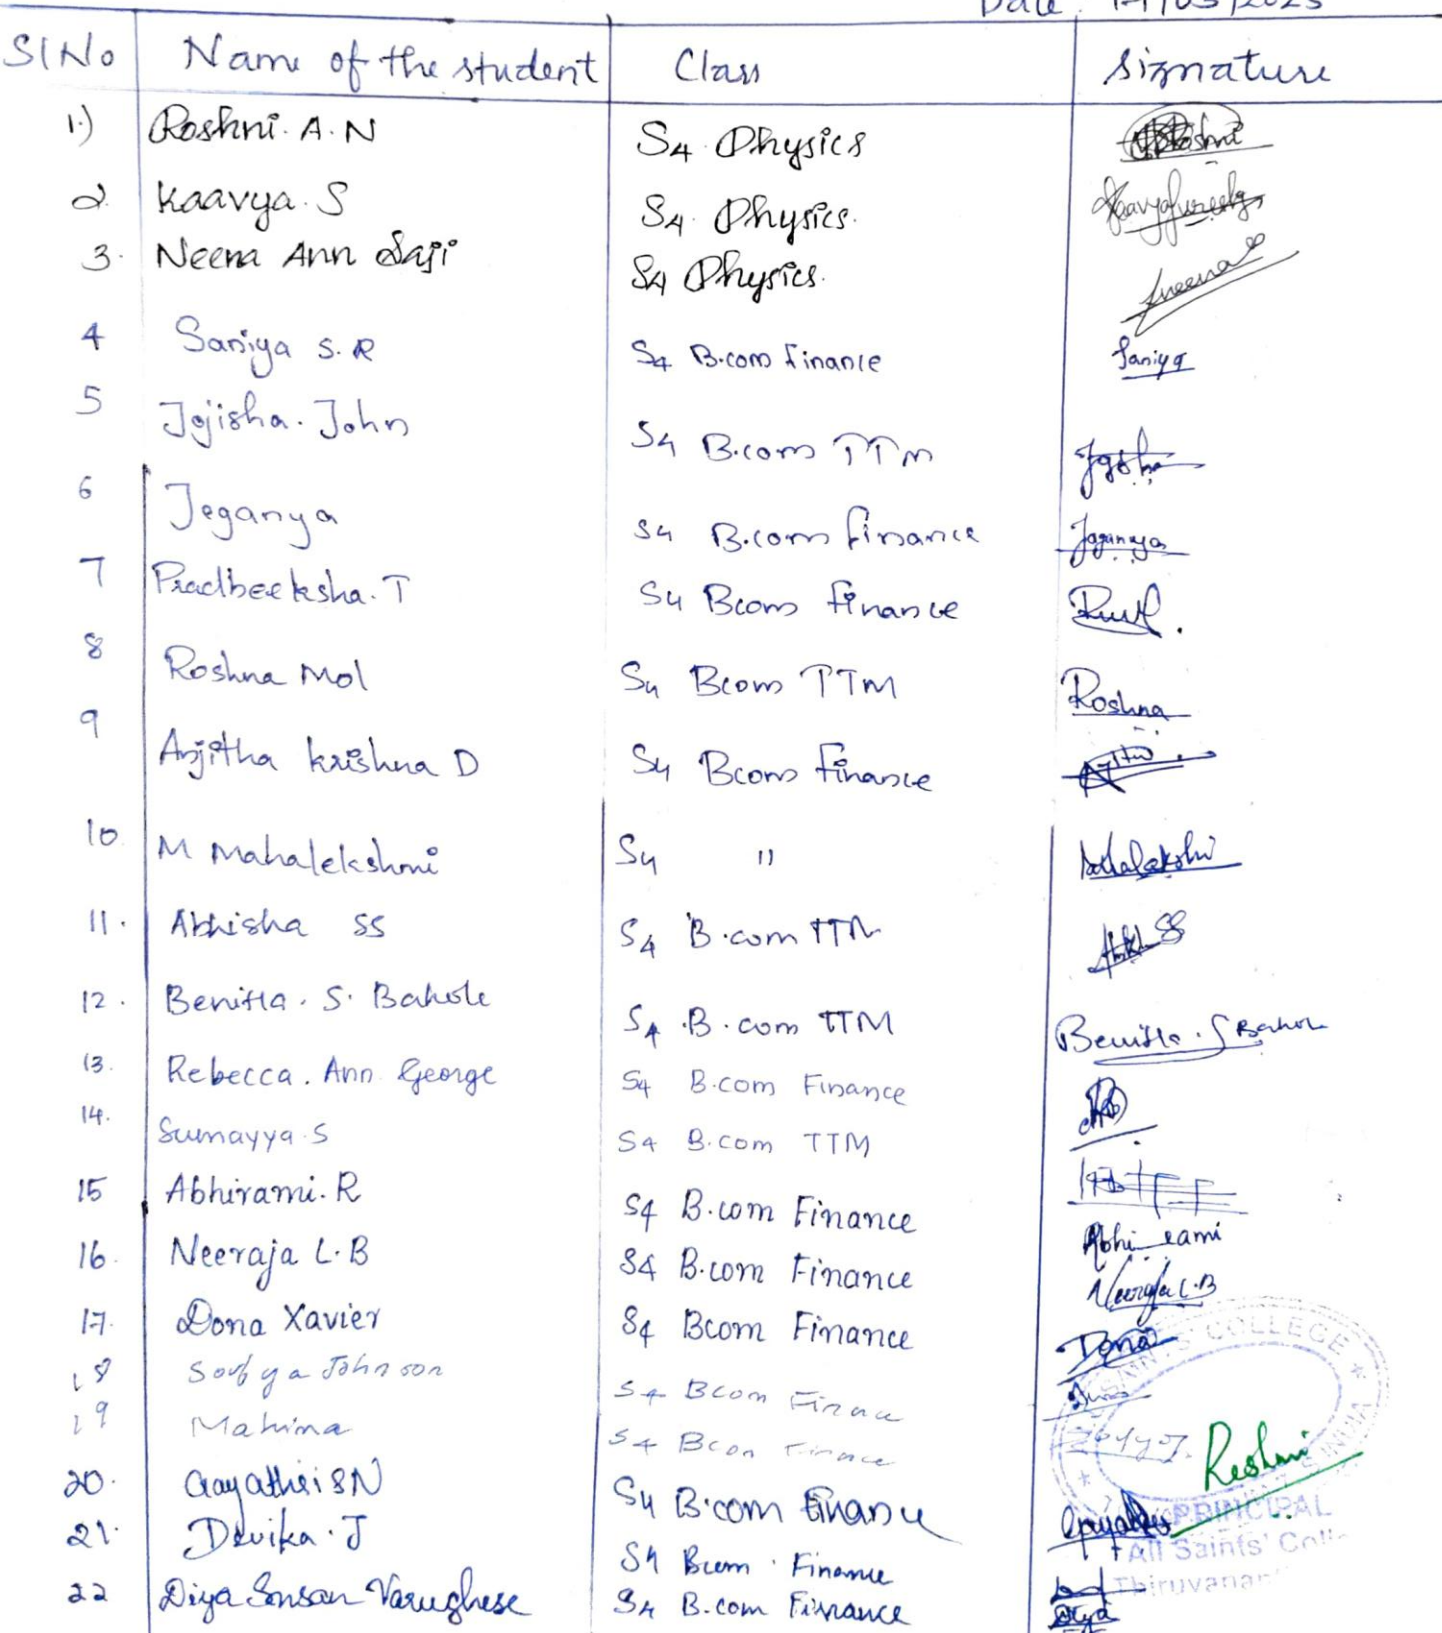 Date: 17/03/2023
Sl No Name of the student Class Signature
1.) Roshni. A. N S4 Physics Roshni
2. Kaavya. S S4. Physics.
3. Neena Ann Saji S4 Physics. Neena
4 Saniya S. R S4 B.com Finance Saniya
5 Jojisha. John S4 B.com TTM
6 Jeganya S4 B.com finance Jeganya
7 Pradheeksha. T S4 Bcom finance
8 Roshna Mol S4 Bcom TTM Roshna
9 Anjitha krishna D S4 Bcom finance
10 M Mahalekshmi S4 "
11. Abhisha SS S4 B.com TTM
12. Benitta. S. Bahole S4 .B.com TTM
13. Rebecca. Ann George S4 B.com Finance
14. Sumayya. S S4 B.com TTM
15 Abhirami. R S4 B.com Finance
16. Neeraja L. B S4 B.com Finance Abhirami
17. Dona Xavier S4 Bcom Finance Neeraja L.B
18 Johnson S4 Bcom Finance Dona
19 Mahima S4 Bcon Finance
20. Gayathri S N S4 B.com Finance Reshmi
21. Devika. J S4 Bcom. Finance
22 Diya Susan Varughese S4 B.com Finance Diya
SAINTS' COLLEGE
PRINCIPAL
All Saints' Coll
Thiruvanan